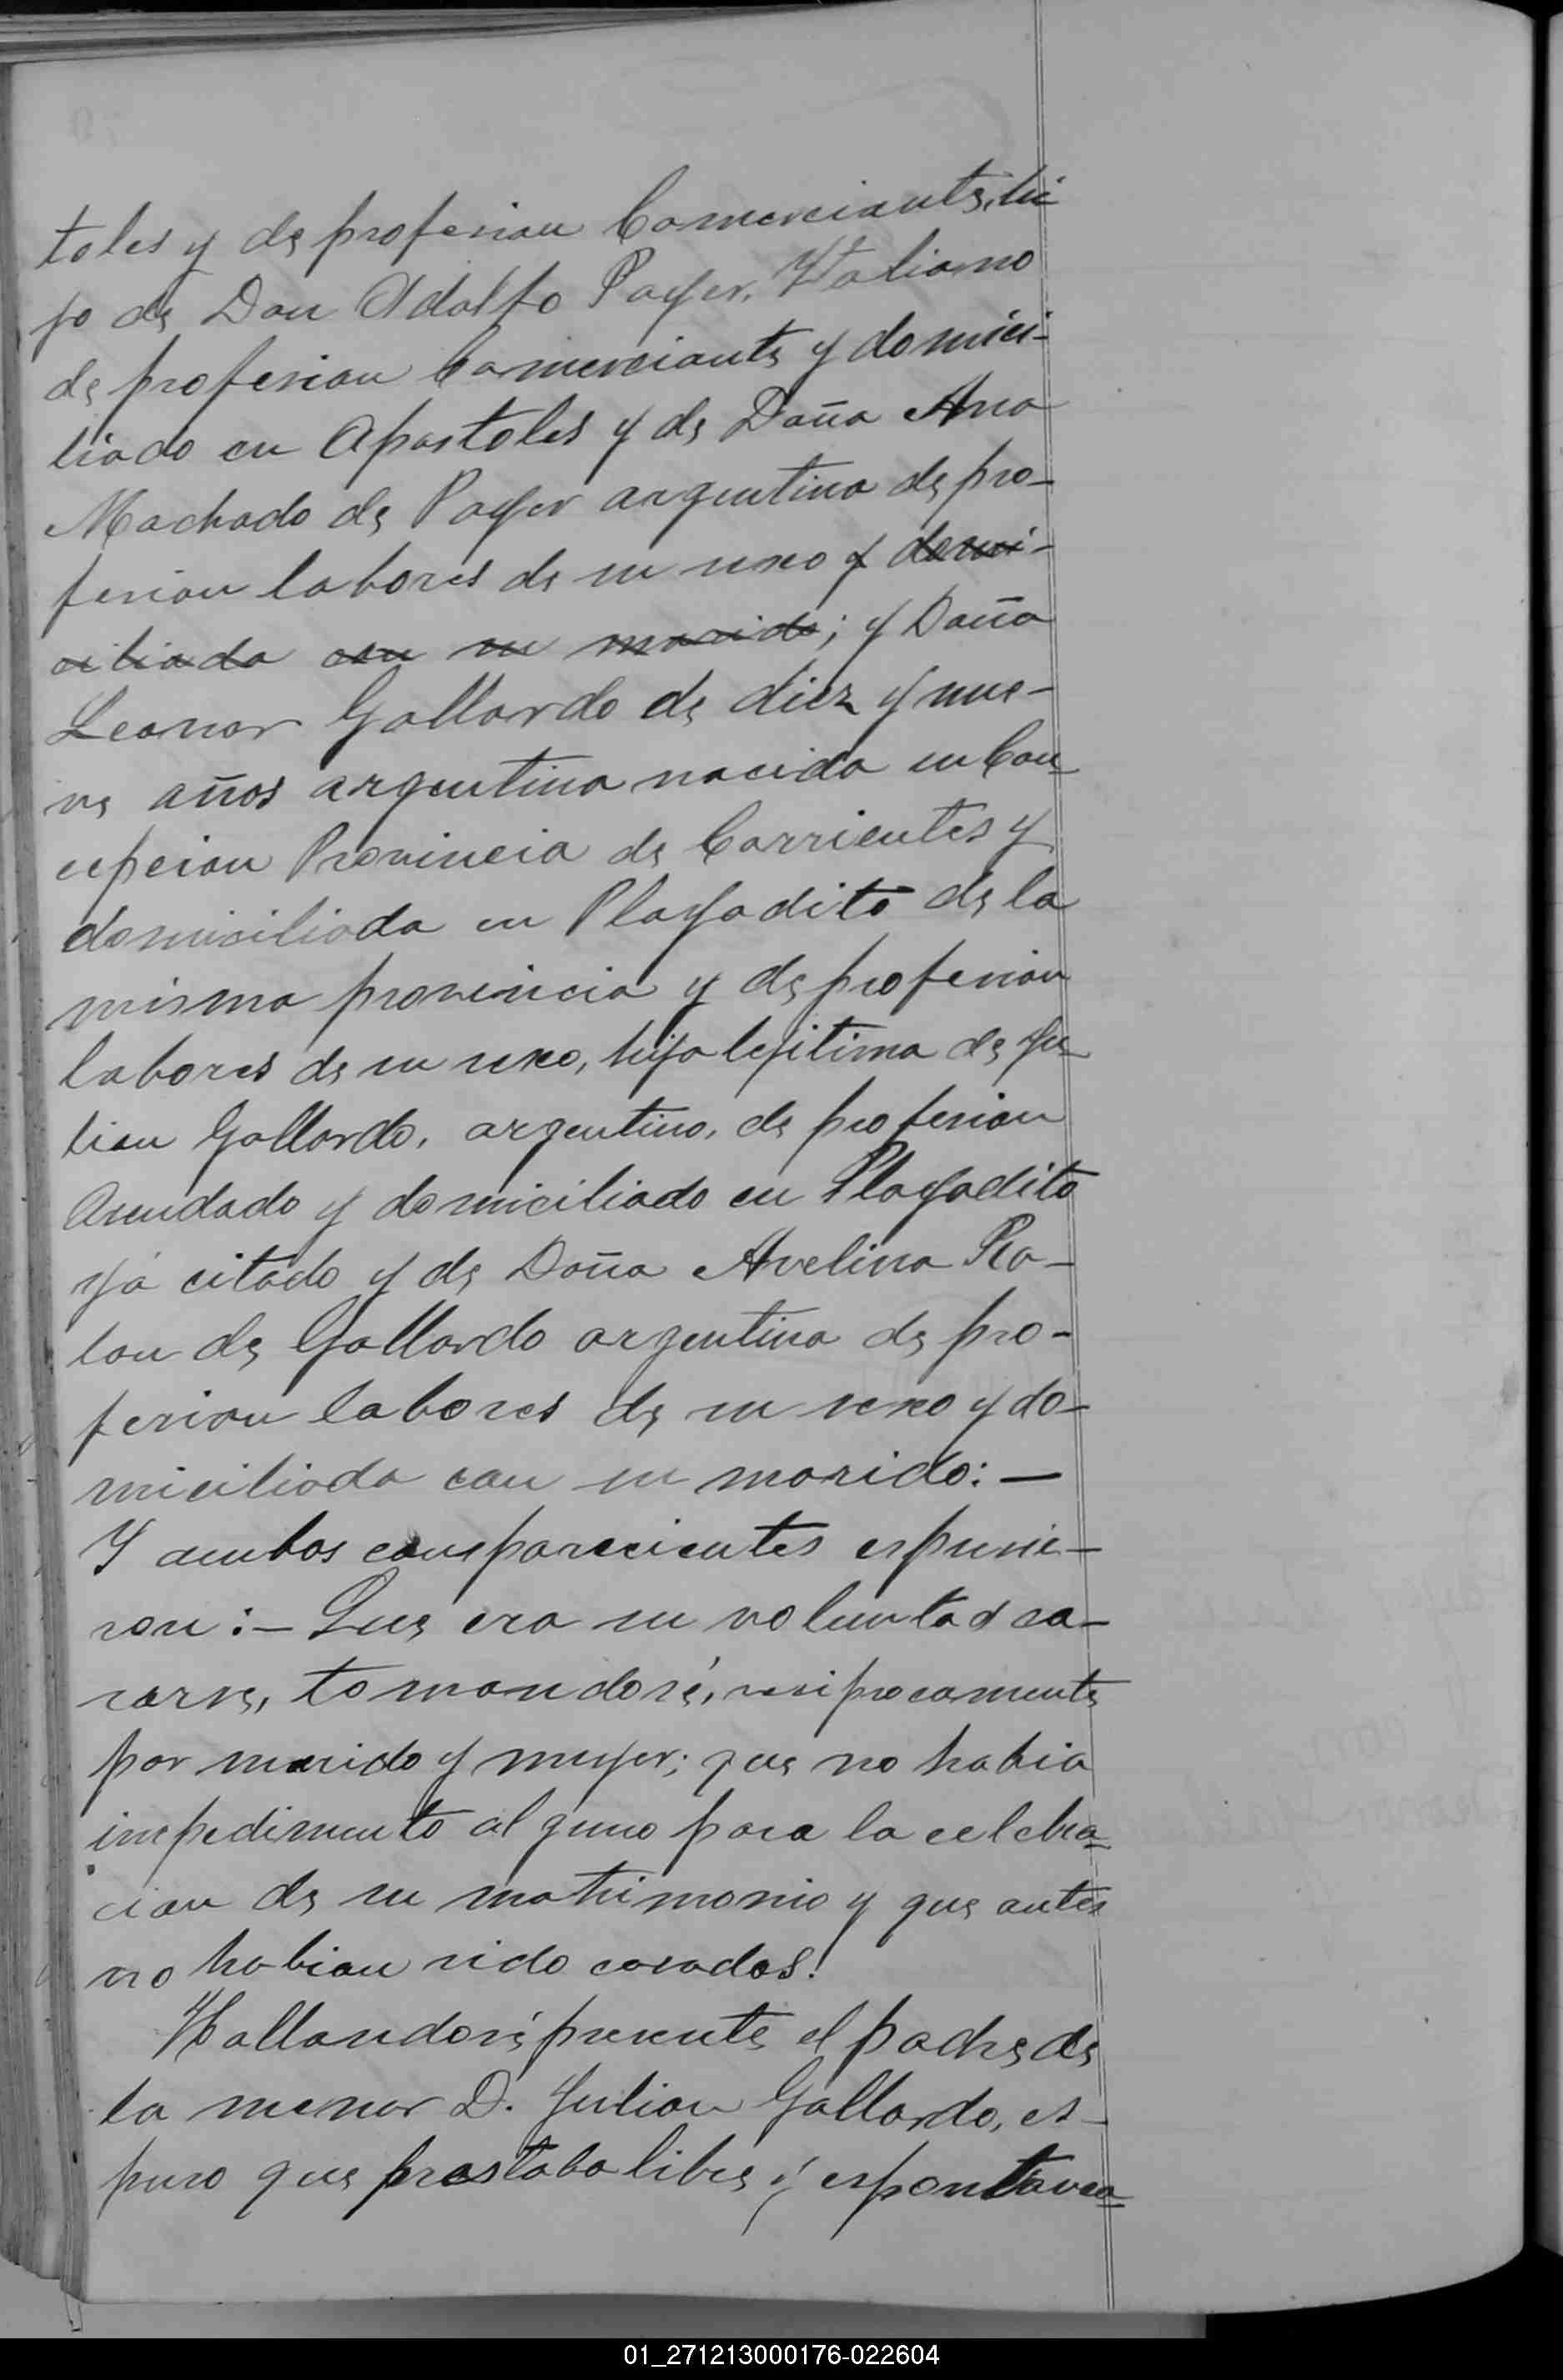 toles y de profesion Comerciante, hi
jo de Don Adolfo Payer, Italiano
de profesion Comerciante y domici-
liado en Apostoles y de Doña Ana
Machado de Payer argentina de pro-
fesion labores de su sexo y domi-
ciliada con su marido; y Doña
Leonor Gallardo de diez y nue-
ve años argentina nacida en Con
cepcion Provincia de Corrientes y
domiciliada en Playadito de la
misma provincia y de profesion
labores de su sexo, hija lejitima de Ju
lian Gallardo, argentino, de profesion
Asendado y domiciliado en Playadito
ya citado y de Doña Avelina Ro-
lon de Gallardo argentina de pro-
fesion labores de su sexo y do-
miciliada con su marido: —
Y ambos comparecientes espusie-
ron: — Que era su voluntad ca-
sarse, tomandosé, resiprocamente
por marido y mujer; que no habia
impedimento alguno para la celebra
cion de su matrimonio y que antes
no habian sido casados.
Hallandosé presente el padre de
la menor D. Julian Gallardo, es-
puso que prestaba libre y espontanea
01_271213000176-022604